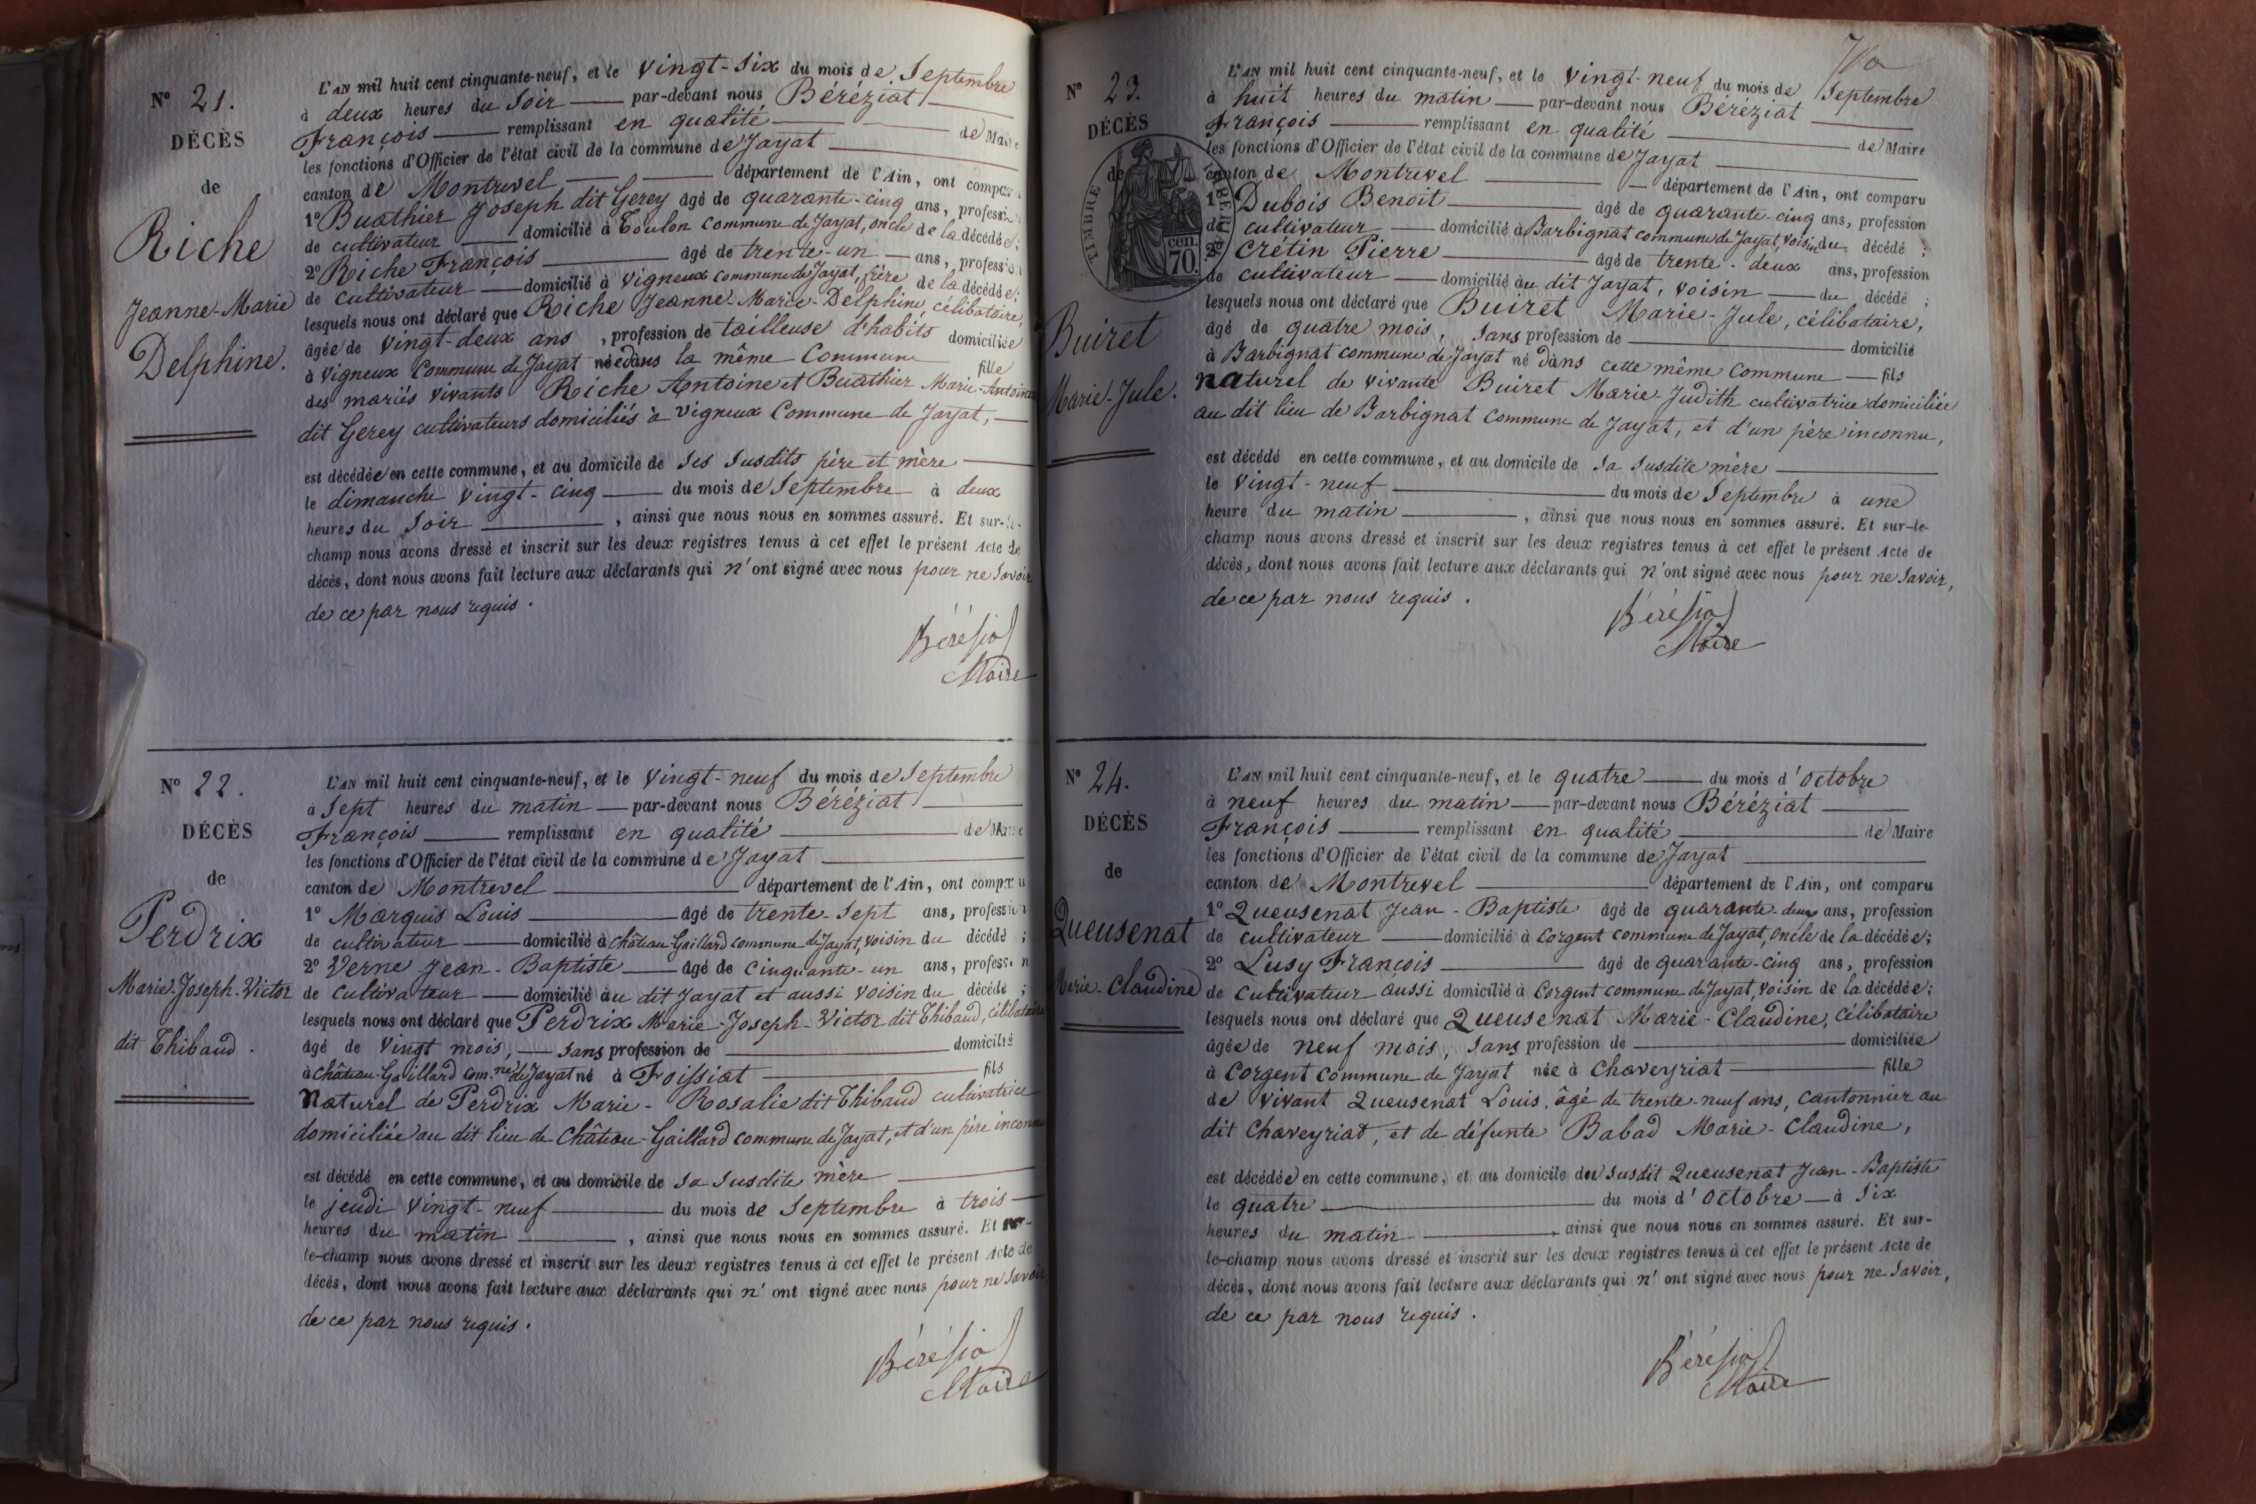 Nº 21.
DÉCÈS
de
Riche
Jeanne-Marie
Delphine.
L'AN mil huit cent cinquante-neuf, et le vingt-six du mois de Septembre
à deux heures du Soir par-devant nous Béréziat
François remplissant en qualité de Maire
les fonctions d'Officier de l'état civil de la commune de Jayat
canton de Montrevel département de l'Ain, ont comparu
1º Buathier Joseph dit Gerey âgé de quarante-cinq ans, profession
de cultivateur domicilié à Toulon commune de Jayat, oncle de la décédée;
2º Riche François âgé de trente-un ans, profession
de cultivateur domicilié à Vigneux commune de Jayat, frère de la décédée;
lesquels nous ont déclaré que Riche Jeanne-Marie-Delphine, célibataire,
âgée de vingt-deux ans, profession de tailleuse d'habits domiciliée
à Vigneux Commune de Jayat née dans la même Commune fille
des mariés vivants Riche Antoine et Buathier Marie-Antoine
dit Gerey cultivateurs domiciliés à Vigneux Commune de Jayat,
est décédée en cette commune, et au domicile de ses susdits père et mère
le dimanche vingt-cinq du mois de Septembre à deux
heures du Soir, ainsi que nous nous en sommes assuré. Et sur-le-
champ nous avons dressé et inscrit sur les deux registres tenus à cet effet le présent Acte de
décès, dont nous avons fait lecture aux déclarants qui n'ont signé avec nous pour ne savoir
de ce par nous requis.
Béréziat
Maire
Nº 22.
DÉCÈS
de
Perdrix
Marie-Joseph-Victor
dit Thibaud.
L'AN mil huit cent cinquante-neuf, et le vingt-neuf du mois de Septembre
à Sept heures du matin par-devant nous Béréziat
François remplissant en qualité de Maire
les fonctions d'Officier de l'état civil de la commune de Jayat
canton de Montrevel département de l'Ain, ont comparu
1º Marquis Louis âgé de trente-sept ans, profession
de cultivateur domicilié à Château-Gaillard commune de Jayat, voisin du décédé;
2º Verne Jean-Baptiste âgé de cinquante-un ans, profession
de cultivateur domicilié au dit Jayat et aussi voisin du décédé;
lesquels nous ont déclaré que Perdrix Marie-Joseph-Victor dit Thibaud, célibataire
âgé de vingt mois, sans profession de domicilié
à Château-Gaillard com.ne de Jayat né à Foissiat fils
naturel de Perdrix Marie-Rosalie dit Thibaud cultivatrice
domiciliée au dit lieu de Château-Gaillard commune de Jayat, et d'un père inconnu
est décédé en cette commune, et au domicile de sa susdite mère
le jeudi vingt-neuf du mois de Septembre à trois
heures du matin, ainsi que nous nous en sommes assuré. Et sur-
le-champ nous avons dressé et inscrit sur les deux registres tenus à cet effet le présent Acte de
décès, dont nous avons fait lecture aux déclarants qui n'ont signé avec nous pour ne savoir
de ce par nous requis.
Béréziat
Maire
Nº 23.
DÉCÈS
de
TIMBRE
cen.
70.
Buiret
Marie-Jule.
L'AN mil huit cent cinquante-neuf, et le vingt-neuf du mois de Septembre
à huit heures du matin par-devant nous Béréziat
François remplissant en qualité de Maire
les fonctions d'Officier de l'état civil de la commune de Jayat
canton de Montrevel département de l'Ain, ont comparu
1º Dubois Benoit âgé de quarante-cinq ans, profession
de cultivateur domicilié à Barbignat commune de Jayat, voisin du décédé;
2º Crétin Pierre âgé de trente-deux ans, profession
de cultivateur domicilié au dit Jayat, voisin du décédé;
lesquels nous ont déclaré que Buiret Marie-Jule, célibataire,
âgé de quatre mois, sans profession de domicilié
à Barbignat commune de Jayat né dans cette même commune fils
naturel de vivante Buiret Marie-Judith cultivatrice domiciliée
au dit lieu de Barbignat commune de Jayat, et d'un père inconnu,
est décédé en cette commune, et au domicile de sa susdite mère
le vingt-neuf du mois de Septembre à une
heure du matin, ainsi que nous nous en sommes assuré. Et sur-le-
champ nous avons dressé et inscrit sur les deux registres tenus à cet effet le présent Acte de
décès, dont nous avons fait lecture aux déclarants qui n'ont signé avec nous pour ne savoir,
de ce par nous requis.
Béréziat
Maire
Nº 24.
DÉCÈS
de
Queusenat
Marie-Claudine
L'AN mil huit cent cinquante-neuf, et le quatre du mois d'octobre
à neuf heures du matin par-devant nous Béréziat
François remplissant en qualité de Maire
les fonctions d'Officier de l'état civil de la commune de Jayat
canton de Montrevel département de l'Ain, ont comparu
1º Queusenat Jean-Baptiste âgé de quarante-deux ans, profession
de cultivateur domicilié à Corgent commune de Jayat, oncle de la décédée;
2º Lusy François âgé de quarante-cinq ans, profession
de cultivateur aussi domicilié à Corgent commune de Jayat, voisin de la décédée;
lesquels nous ont déclaré que Queusenat Marie-Claudine, célibataire
âgée de neuf mois, sans profession de domiciliée
à Corgent commune de Jayat née à Chaveyriat fille
de vivant Queusenat Louis, âgé de trente-neuf ans, cantonnier au
dit Chaveyriat, et de défunte Babad Marie-Claudine,
est décédée en cette commune, et au domicile du susdit Queusenat Jean-Baptiste
le quatre du mois d'octobre à six
heures du matin, ainsi que nous nous en sommes assuré. Et sur-
le-champ nous avons dressé et inscrit sur les deux registres tenus à cet effet le présent Acte de
décès, dont nous avons fait lecture aux déclarants qui n'ont signé avec nous pour ne savoir,
de ce par nous requis.
Béréziat
Maire